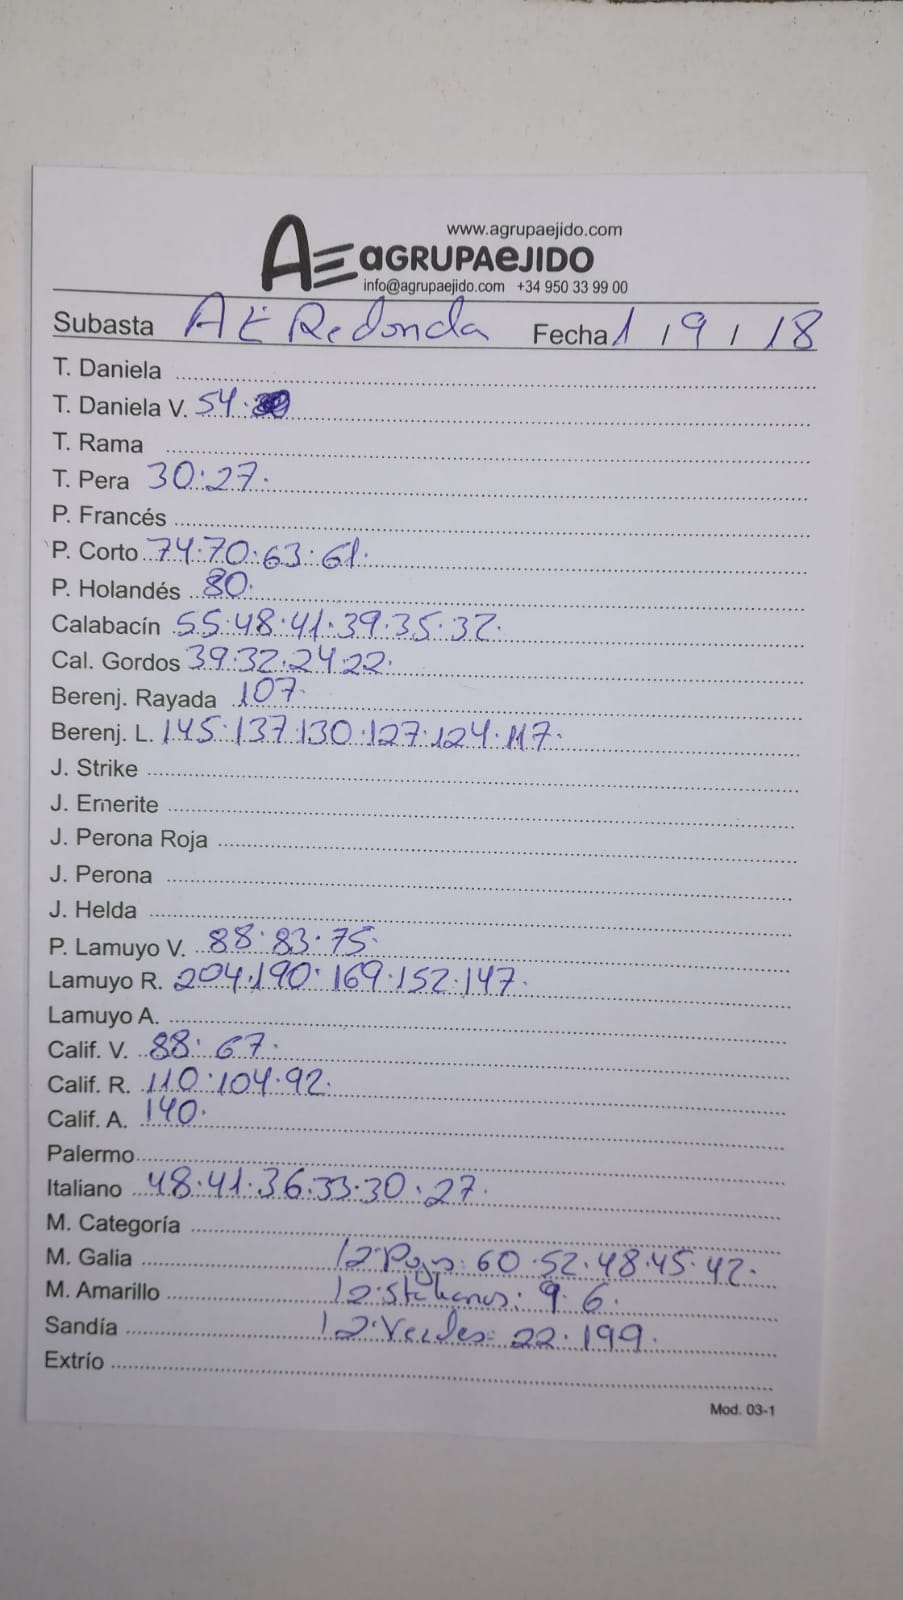 www.agrupaejido.com
AE aGRUPAeJIDO
info@agrupaejido.com +34 950 33 99 00
Subasta AE Redonda Fecha 1 / 9 / 18
T. Daniela
T. Daniela V. 54.
T. Rama
T. Pera 30.27.
P. Francés
P. Corto 74.70.63.61.
P. Holandés 80.
Calabacín 55.48.41.39.35.32.
Cal. Gordos 39.32.24.22.
Berenj. Rayada 107.
Berenj. L. 145.137.130.127.124.117.
J. Strike
J. Emerite
J. Perona Roja
J. Perona
J. Helda
P. Lamuyo V. 88.83.75.
Lamuyo R. 204.190.169.152.147.
Lamuyo A.
Calif. V. 88.67.
Calif. R. 110.104.92.
Calif. A. 140.
Palermo
Italiano 48.41.36.33.30.27.
M. Categoría
M. Galia 60.52.48.45.42.
M. Amarillo 9.6.
Sandía Verdes: 22.199.
Extrío
Mod. 03-1